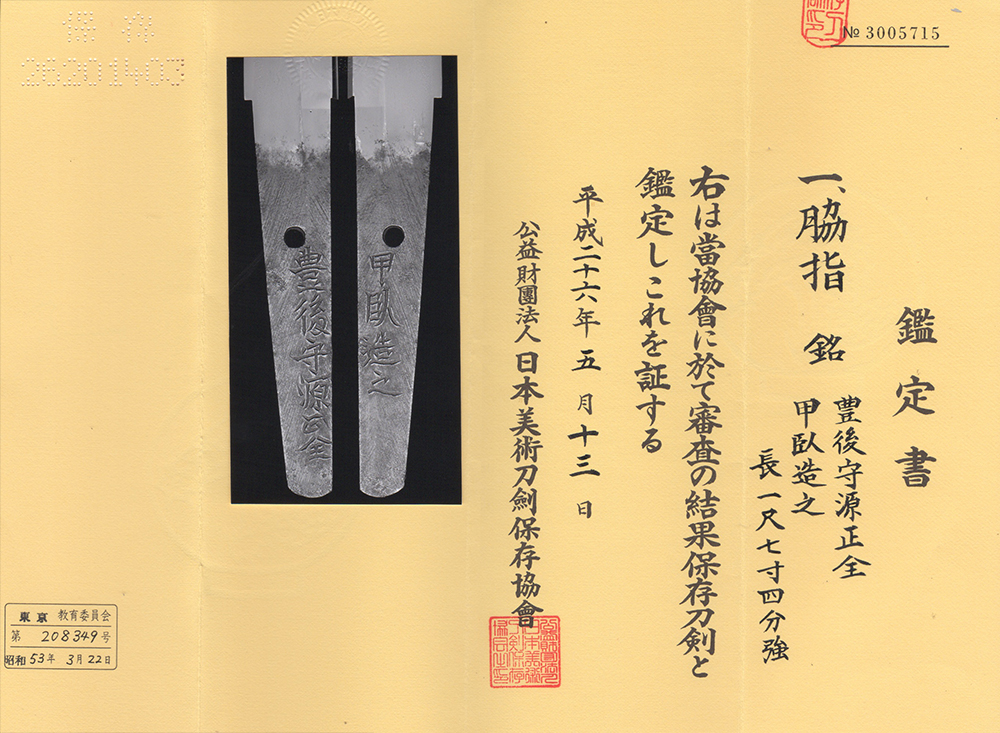 № 3005715
鑑定書
一、脇指 銘 豊後守源正全
甲臥造之
長一尺七寸四分強
右は當協會に於て審査の結果保存刀剣と
鑑定しこれを証する
平成二十六年五月十三日
公益財團法人日本美術刀劍保存協會
甲臥造之
豊後守源正全
保存
26201403
東京教育委員会
第208349号
昭和53年3月22日